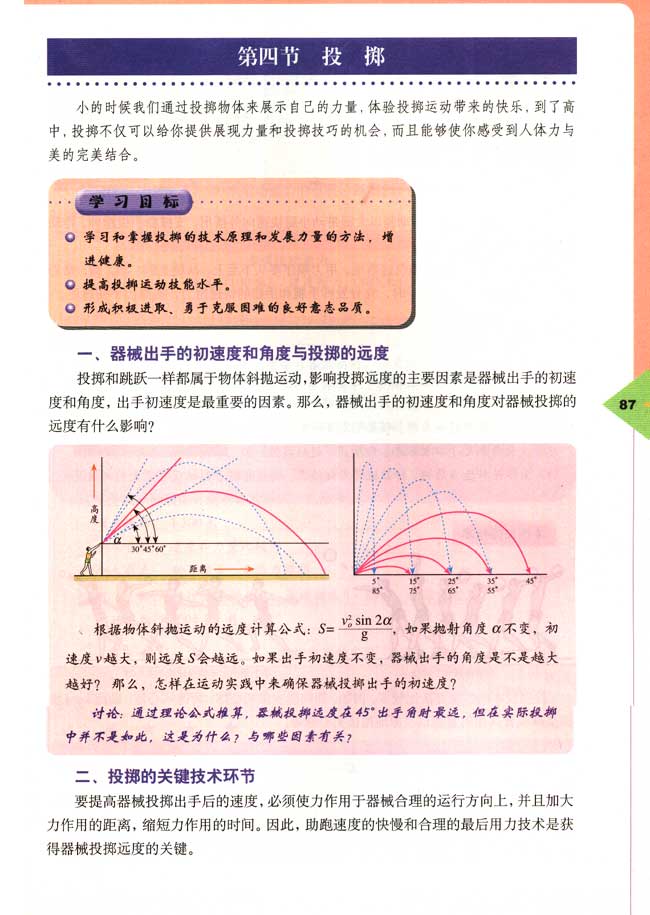 第四节 投 掷
小的时候我们通过投掷物体来展示自己的力量，体验投掷运动带来的快乐，到了高
中，投掷不仅可以给你提供展现力量和投掷技巧的机会，而且能够使你感受到人体力与
美的完美结合。
学习目标
学习和掌握投掷的技术原理和发展力量的方法，增
进健康。
提高投掷运动技能水平。
形成积极进取、勇于克服困难的良好意志品质。
一、器械出手的初速度和角度与投掷的远度
投掷和跳跃一样都属于物体斜抛运动，影响投掷远度的主要因素是器械出手的初速
度和角度，出手初速度是最重要的因素。那么，器械出手的初速度和角度对器械投掷的
远度有什么影响？
87
高度
α
30°45°60°
距离
5° 15° 25° 35° 45°
85° 75° 65° 55°
根据物体斜抛运动的远度计算公式：S= v₀² sin 2α / g，如果抛射角度α不变，初
速度v越大，则远度S会越远。如果出手初速度不变，器械出手的角度是不是越大
越好？那么，怎样在运动实践中来确保器械投掷出手的初速度？
讨论：通过理论公式推算，器械投掷远度在45°出手角时最远，但在实际投掷
中并不是如此，这是为什么？与哪些因素有关？
二、投掷的关键技术环节
要提高器械投掷出手后的速度，必须使力作用于器械合理的运行方向上，并且加大
力作用的距离，缩短力作用的时间。因此，助跑速度的快慢和合理的最后用力技术是获
得器械投掷远度的关键。